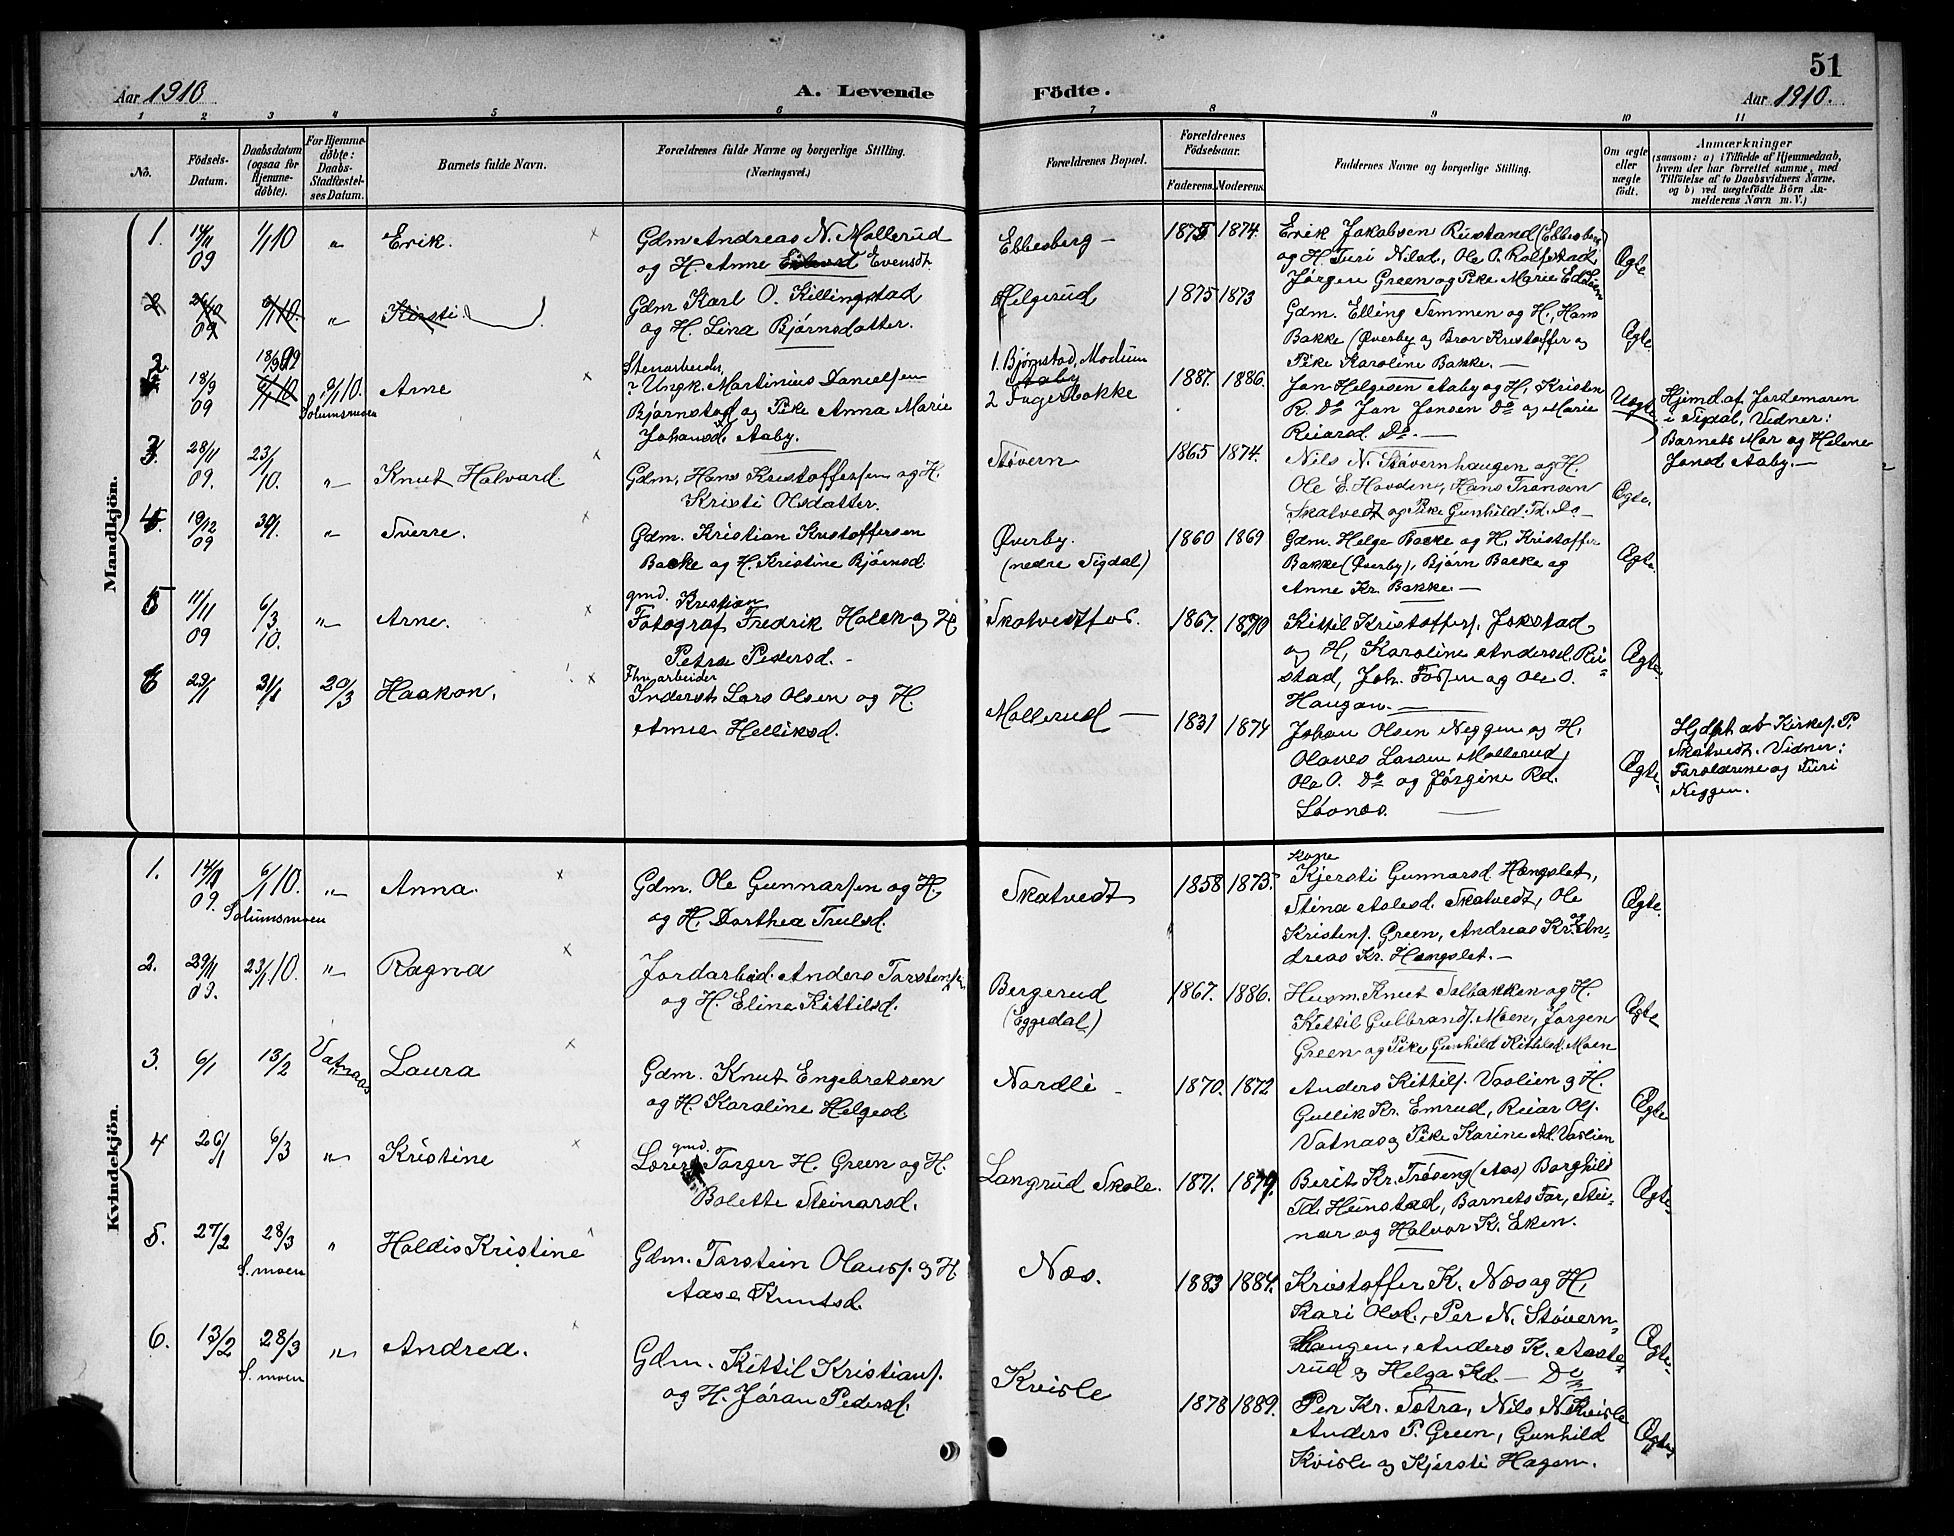 51
Aar 1910
A. Levende
Födte.
Aar 1910.
1 2 3 4 5 6 7 8 9 10 11
No.
Födsels-
Datum.
Daabsdatum
(ogsaa for
Hjemme-
döbte).
For Hjemme-
döbte:
Daabs-
Stadfæstel-
ses Datum.
Barnets fulde Navn.
Forældrenes fulde Navne og borgerlige Stilling.
(Næringsvei.)
Forældrenes Bopæl.
Forældrenes
Födselsaar.
Faderens. Moderens.
Faddernes Navne og borgerlige Stilling.
Om ægte
eller
uægte
födt.
Anmærkninger
(saasom: a) i Tilfælde af Hjemmedaab,
hvem der har forrettet samme, med
Tilföielse af to Daabsvidners Navne,
og b) ved uægtefödte Börn An-
melderens Navn m. V.)
Mandkjön.
1. 14/11 09 1/1 10 „ Erik.
Gdm Andreas N. Mollerud
og H. Anne Evensdt.
Ebbesberg —
1875 1874.
Erik Jakobsen Rustand (Ebbesberg)
og H. Turi Nilsd, Ole O. Rolfstad
Jørgen Green og Pike Marie
Ægte.
2 26/10 09 6/1 10. „ Kirsti.
Gdm Karl O. Killingstad
og H. Lina Bjørnsdatter.
Helgerud
1875 1873
Gdm. Elling Temmen og H, Hans
Bakke (Øverby og Bror Kristoffer og
Pike Karoline Bakke. —
Ægte.
2 18/9 09 18/9 09 6/1 10 9/1 10. Solumsmoen Arne
Stenarbeider,
Ungk. Martinius Danielsen
Bjørnstad og Pike Anna Marie
Johansd. Aaby.
1. Bjørnstad, Modum
Aaby
2 Fagerbakke
1887. 1886.
Jan Helgesen Aaby og H, Kristen
R. Do Jan Jansen Do og Marie
Reiarsd. Do. —
Uægte
Hjemd. af Jordemoren
i Sigdal, Vidner:
Barnets Mor og Helene
Jonsd Aaby. —
3. 28/11 09. 23/1 10. „ Knut Halvard.
Gdm. Hans Kristoffersen og H.
Kristi Olsdatter.
Støvern
1865 1874.
Nils N. Støvernhaugen og H.
Ole E. Hovdene, Hans Fransen
Skatvedt og Pike Gunhild Td. Do —
Ægte.
4. 19/12 09 30/1. „ Sverre.
Gdm. Kristian Kristoffersen
Bakke og H. Kristine Bjørnsd
Øverby.
(nedre Sigdal)
1860 1869
Gdm. Helge Bakke og H, Kristoffer
Bakke (Øverby), Bjørn Bakke og
Anne Kr. Bakke. —
Ægte.
5 11/11 09 6/3 10. „ Arne.
gmd. Kristian
Fotograf Fredrik Holen og H
Petra Pedersd. —
Skatvedtfos.
1867. 1870
Kittil Kristoffers. Jokstad
og H, Karoline Andersd. Ru-
stad, Joh. Fossen og Ole O.
Haugan. —
Ægte.
6 23/1 31/1 20/3 Haakon.
Fhn. arbeider
Inderst Lars Olsen og H.
Anne Helliksd.
Mollerud —
1831 1874
Johan Olsen Neggen og H,
Olaves Larsen Mollerud,
Ole O. Do og Jørgine Rd.
Løvnes. —
Ægte.
Hjdpt. av Kirkes. P.
Skatvedt. Vidner:
Forældrene og Turi
Neggen.
Kvindekjön.
1. 14/11 09. 6/1 10. Solumsmoen „ Anna.
Gdm. Ole Gunnarsen og H,
og H. Dorthea Trulsd.
Skatvedt
1858 1875.
Kone
Kjersti Gunnarsd Hængslet,
Stina Aolesd. Skatvedt, Ole
Kristens. Green, Andreas Kr. og An-
dreas Kr. Hængslet. —
Ægte.
2. 29/11 09. 23/1 10. „ Ragna
Jordarbeid. Anders Torstens.
og H. Eline Kittilsd.
Bergerud
(Eggedal.)
1867. 1886.
Husm. Knut Solbakken og H.
Kittil Gulbrands. Moen, Jørgen
Green og Pike Gunhild Kittilsd. Moen
Ægte
3. 6/1 13/2 Vatnaas „ Laura
Gdm. Knut Engebretsen
og H. Karoline Helgesd.
Nordli —
1870. 1872
Anders Kittils. Vaslien og H.
Gullik Kr. Emrud, Reiar Ols.
Vatnas og Pike Karine Ad. Vaslien
Ægte
4 26/1 6/3 „ Kristine
gmd.
Lærer Torger H. Green og H.
Bolette Steinarsd.
Langrud Skole.
1871. 1879.
Berit Kr. Trøseng (Aas) Borghild
Td. Hunstad, Barnets Far, Stei-
nar og Halvor K. Eken.
Ægte.
5. 27/2 28/3 S. moen „ Haldis Kristine
Gdm. Torstein Olaus. og H
Aase Knutsd.
Næs.
1883 1884.
Kristoffer K. Næs og H,
Kari Olsd., Per N. Støvern-
haugen, Anders K. Aaste-
rud og Helga Kd — Do
Ægte.
6. 13/2 28/3 S. moen „ Andrea.
Gdm. Kittil Kristians.
og H. Jøran Peders.
Kvisle
1878 1889.
Per Kr. Sotra, Nils N. Kvisle
Anders P. Green, Gunhild
Kvisle og Kjersti Hagen.
Ægte